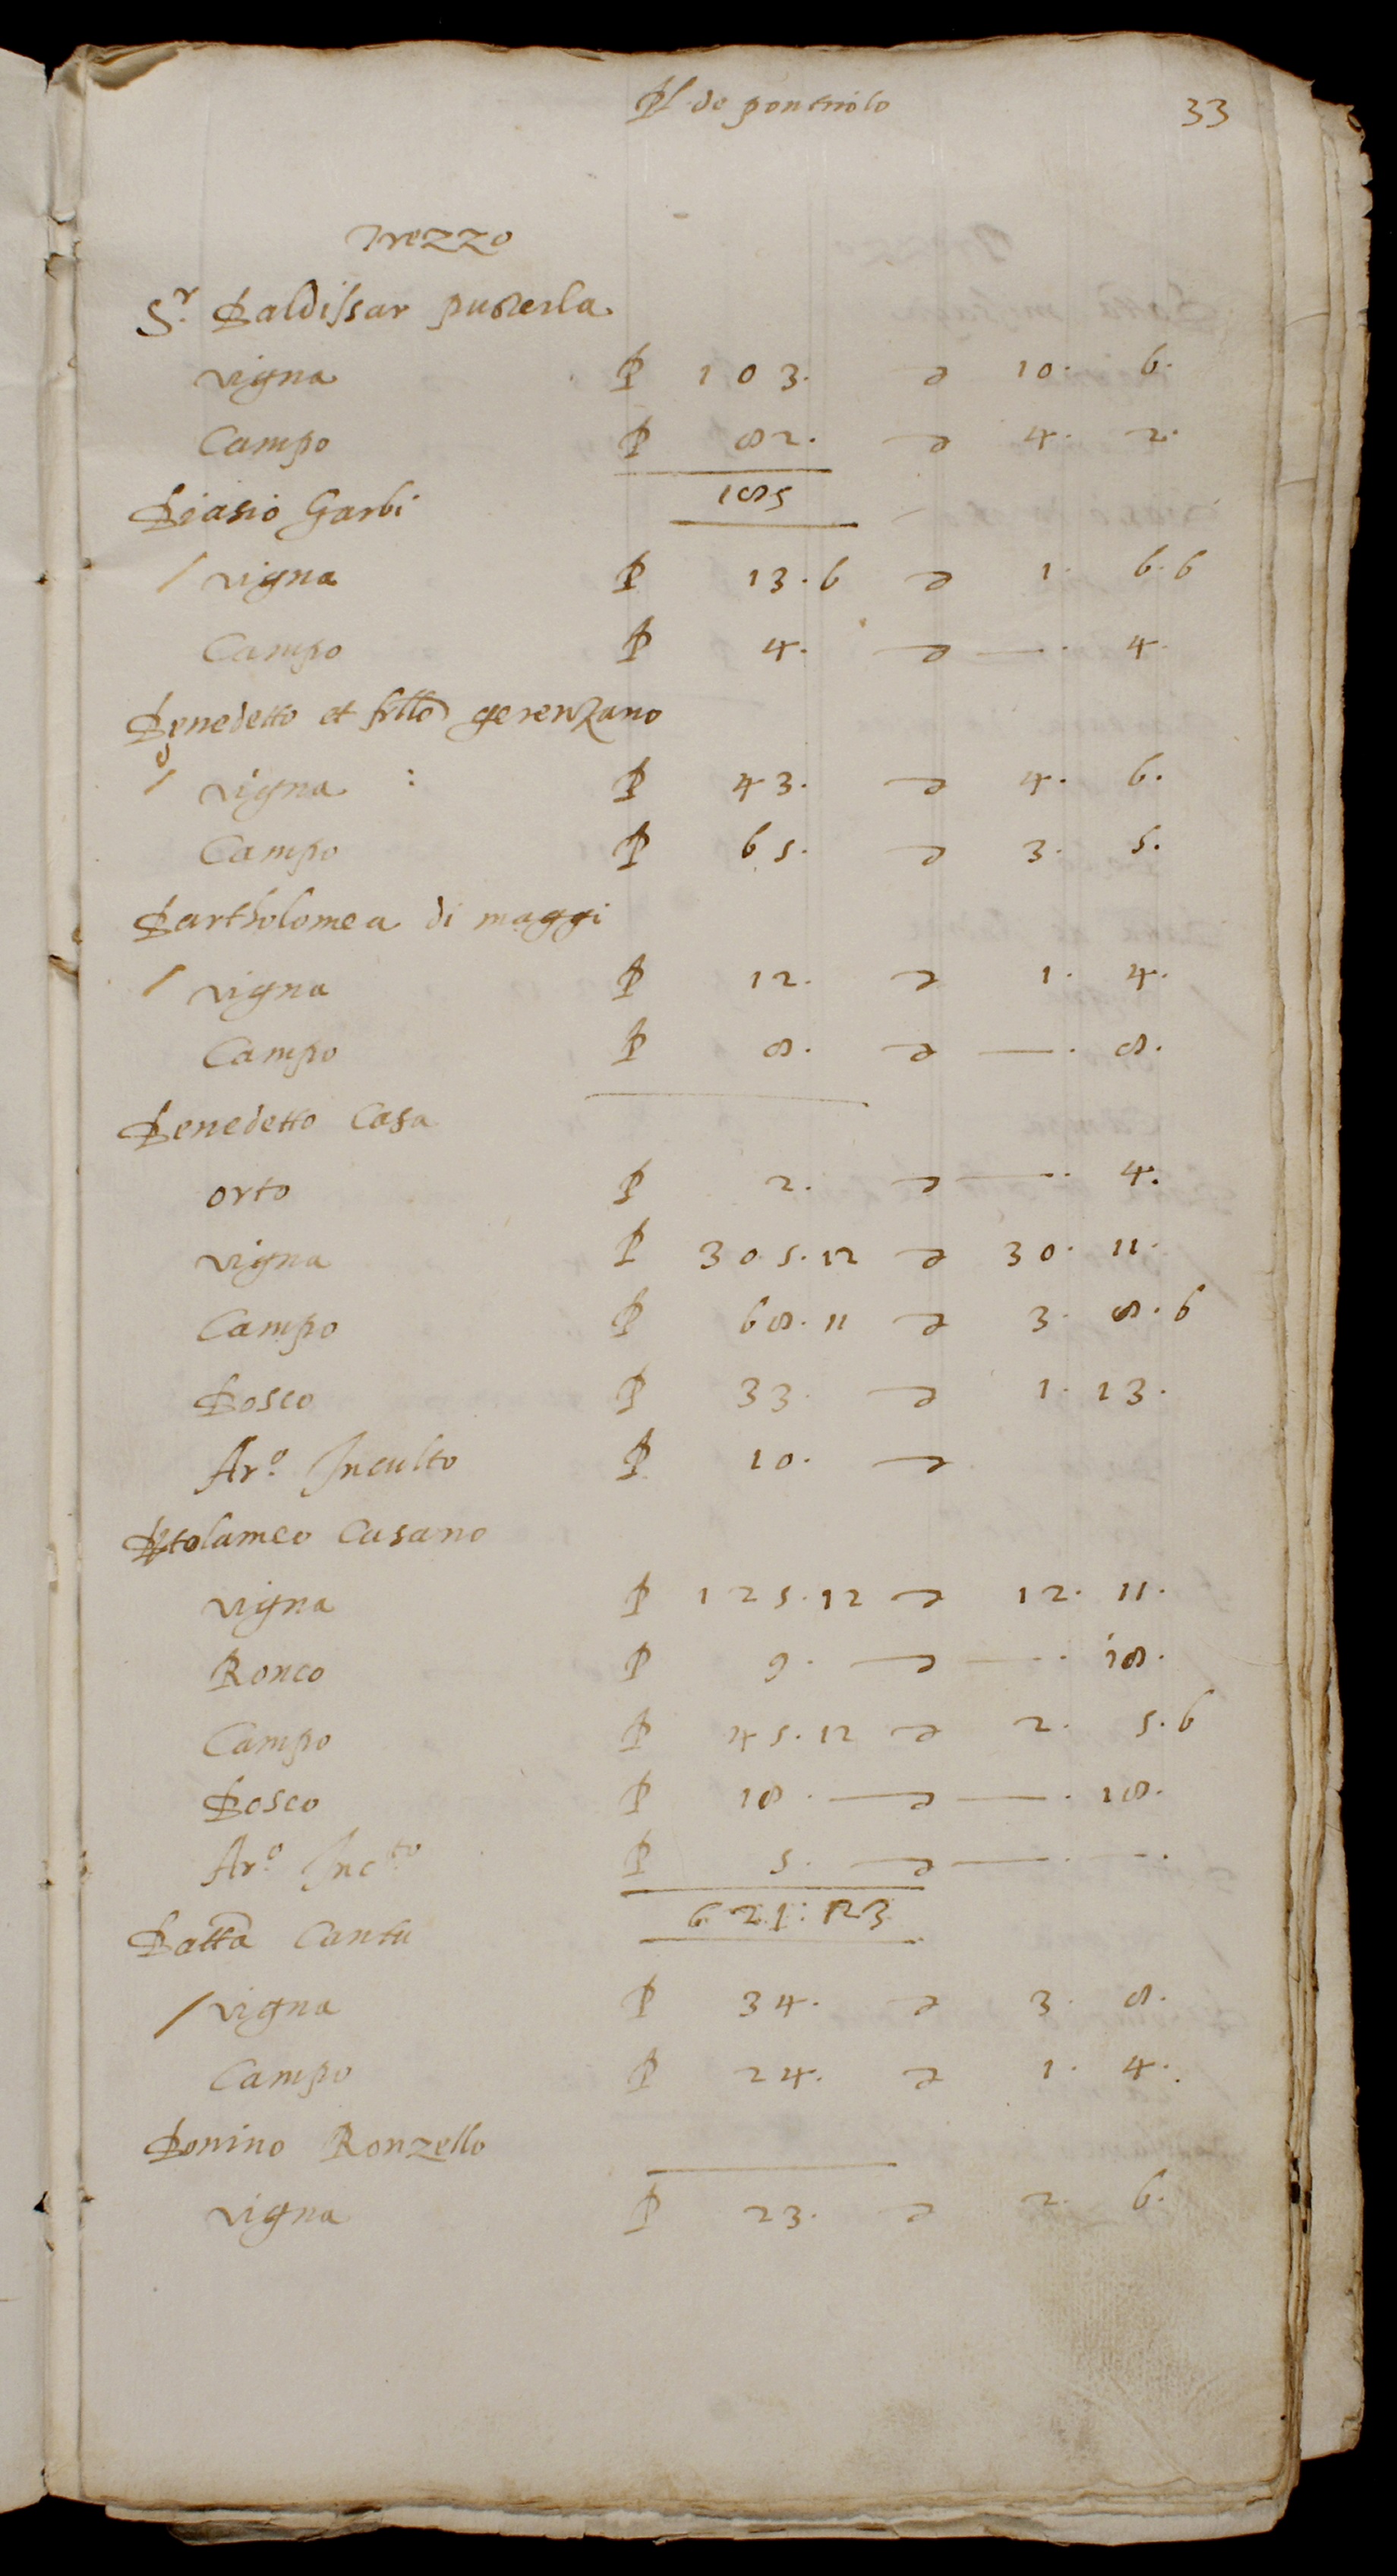 Pl. de pontirolo 33
Trezzo
S.r Baldissar pusterla
vigna P 103. d 10. 6.
Campo P 82. d 4. 2.
185
Biasio Garbi
/ vigna P 13.6 d 1. 6.6
Campo P 4. d —. 4.
Benedetto et gerenzano
/ vigna : P 43. d 4. 6.
Campo P 65. d 3. 5.
Bartholomea di maggi
/ vigna P 12. d 1. 4.
Campo P 8. d —. 8.
Benedetto Casa
orto P 2. d —. 4.
vigna P 305.12 d 30. 11.
Campo P 68.11 d 3. 8.6
Bosco P 33. d 1. 13.
Ar.o Inculto P 10. d
Btolameo Cusano
vigna P 125.12 d 12. 11.
Ronco P 9. d —. 18.
Campo P 45.12 d 2. 5.6
Bosco P 18. d —. 18.
Ar.o Inc.to P 5. d —. —.
621:23
Batta Cantu
/ vigna P 34. d 3. 8.
Campo P 24. d 1. 4.
Bonino Ronzello
vigna P 23. d 2. 6.